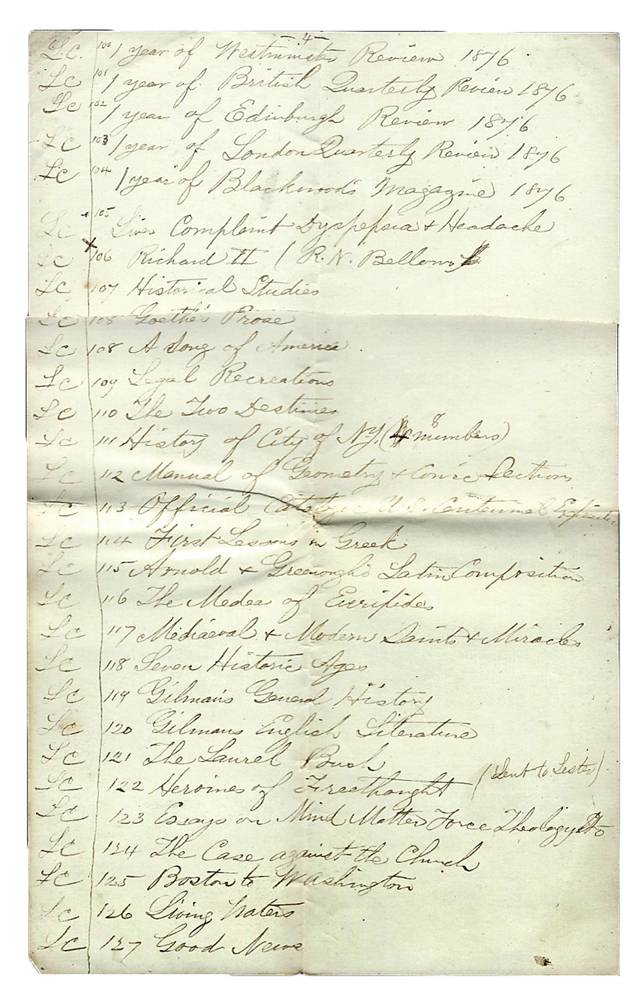 4
Lc. 100 1 year of Westminster Review 1876
Lc 101 1 year of British Quarterly Review 1876
Lc 102 1 year of Edinburgh Review 1876
Lc 103 1 year of London Quarterly Review 1876
Lc 104 1 year of Blackwood's Magazine 1876
Lc 105 Liver Complaint Dyspepsia & Headache
Lc x 106 Richard III (R. N. Bellows
Lc 107 Historical Studies
Lc 108 Goethe's Prose
Lc 108 A Song of America
Lc 109 Legal Recreations
Lc 110 The Two Destinies
Lc 111 History of City of N.Y. (8 numbers)
Lc 112 Manual of Geometry & Conic Sections
Lc 113 Official Catalogue U.S. Centennial
Lc 114 First Lessons in Greek
Lc 115 Arnold & Greenough's Latin Composition
Lc 116 The Medea of Euripides
Lc 117 Mediaeval & Modern Saints & Miracles
Lc 118 Seven Historic Ages
Lc 119 Gilmans General History
Lc 120 Gilmans English Literature
Lc 121 The Laurel Bush
Lc 122 Heroines of Freethought (Lent to Lester)
Lc 123 Essays on Mind Matter Force Theology Etc
Lc 124 The Case against the Church
Lc 125 Boston to Washington
Lc 126 Living Waters
Lc 127 Good News